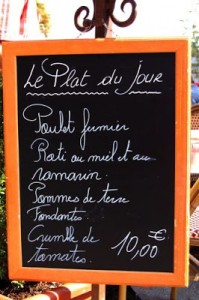 Le Plat du Jour
Poulet fermier
Roti au miel et au
romarin.
Pommes de terre
Fondantes
Crumble de
tomates. 10,00 €